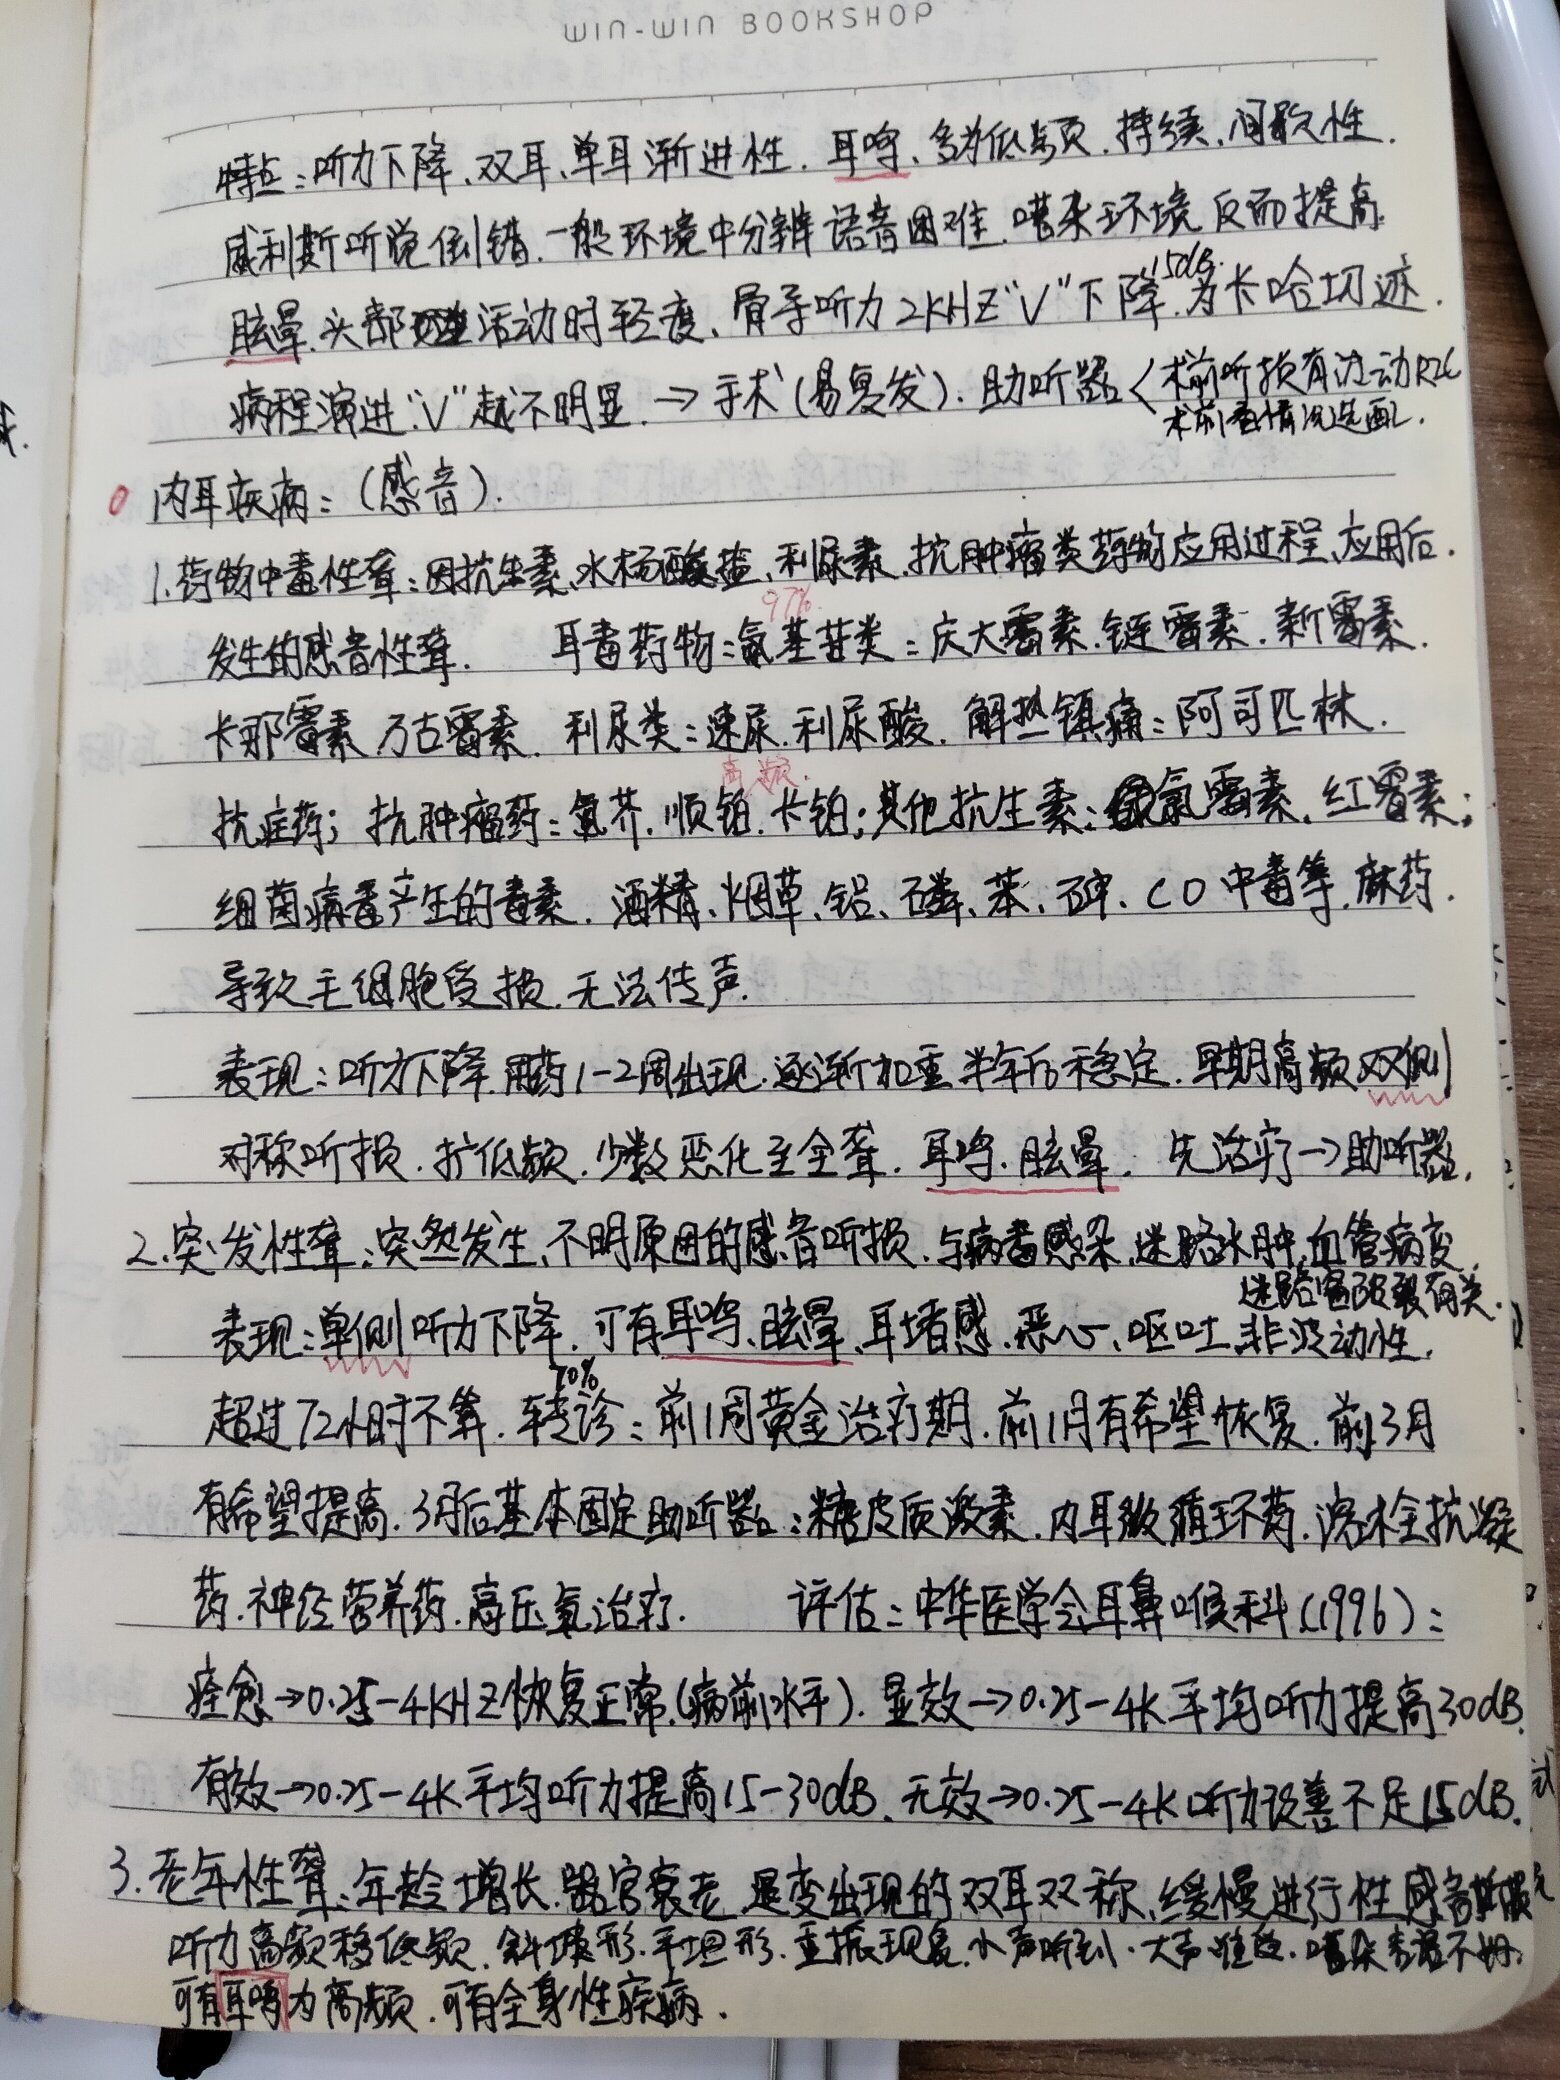 WIN-WIN BOOKSHOP
特点:听力下降、双耳、单耳渐进性.耳鸣、多为低频.持续、间歇性.
威利斯听觉倒错.一般环境中分辨语音困难.嘈杂环境反而提高.
15dB.
眩晕.头部活动时轻度、骨导听力2KHZ"V"下降.为卡哈切迹.
病程演进"V"越不明显.→手术(易复发).助听器<术前听损有波动RIC
术前看情况选配.
内耳疾病:(感音).
1.药物中毒性聋:因抗生素、水杨酸盐、利尿素.抗肿瘤类药物应用过程、应用后.
97%.
发生的感音性聋. 耳毒药物:氨基苷类:庆大霉素.链霉素.新霉素.
卡那霉素.万古霉素. 利尿类:速尿.利尿酸. 解热镇痛:阿司匹林.
高频.
抗症药; 抗肿瘤药:氮芥.顺铂.卡铂;其他抗生素:氯霉素.红霉素;
细菌病毒产生的毒素.酒精、烟草、铅、磷、苯、砷、CO中毒等.麻药.
导致毛细胞受损.无法传声.
表现:听力下降.用药1-2周出现.逐渐加重半年后稳定.早期高频双侧
对称听损.扩低频.少数恶化至全聋.耳鸣.眩晕. 先治疗→助听器.
2.突发性聋:突然发生、不明原因的感音听损.与病毒感染.迷路水肿,血管病变.
迷路窗破裂有关.
表现:单侧听力下降.可有耳鸣、眩晕、耳堵感.恶心、呕吐.非波动性.
70%
超过72小时不算.转诊:前1周黄金治疗期.前1月有希望恢复.前3月
有希望提高.3月后基本固定助听器:糖皮质激素.内耳微循环药.溶栓抗凝
药.神经营养药.高压氧治疗. 评估:中华医学会耳鼻喉科(1996):
痊愈→0.25-4KHZ恢复正常.(病前水平).显效→0.25-4K平均听力提高30dB.
有效→0.25-4K平均听力提高15-30dB.无效→0.25-4K听力改善不足15dB.
3.老年性聋:年龄增长.器官衰老.退变出现的双耳对称、缓慢进行性感音
听力高频移低频.斜坡形.平坦形.重振现象.小声听到.大声难受.嘈杂言语不好.
可有耳鸣为高频.可有全身性疾病.